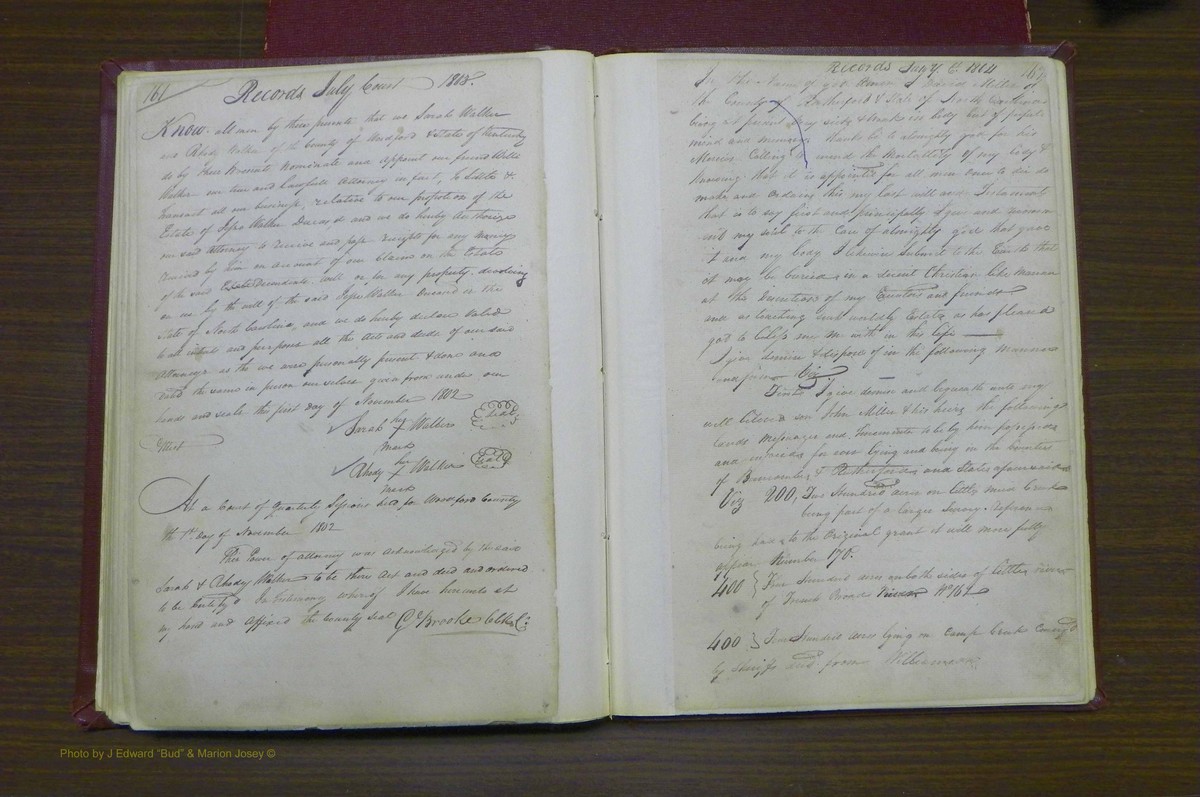 161
Records July Court 1808.
Know all men by these presents that we Sarah Walker
and Rhody Walker of the County of Woodford & State of Kentucky
do by these presents nominate and appoint our friend
Walker our true and lawfull Attorney in fact, to Settle &
transact all our business, relative to our proportion of the
Estate of Jesse Walker Deceased and we do hereby authorize
our said Attorney to receive and pass receipts for any money
received by him on account of our Claims on the Estate
of the said Decendents will or for any property devolving
on us by the will of the said Jesse Walker Deceased in the
State of North Carolina, and we do hereby declare Valid
to all intents and purposes all the Acts and deeds of our said
Attorney as tho we were personally present & done and
the same in person our selves given from under our
hands and seals this first day of November 1802
Attest
Sarah her x Walker Seal
mark
Rhody her x Walker Seal
mark
At a Court of Quarterly Sessions held for Woodford County
the 1st day of November 1802
This Power of attorney was acknowledged by the said
Sarah & Rhody Walker to be there act and deed and ordered
to be Certify'd In testimony whereof I have hereunto set
my hand and affixed the County Seal Brooke
Records 1804
In the Name of god Amen I David Miller of
the County of Rutherford & State of North Carolina
being at present very sick & weak in body but of perfect
mind and memory thanks be to almighty god for his
Mercies Calling to mind the Mortallity of my body &
knowing that it is appointed for all men once to die do
make and ordain this my last will and Testament
that is to say first and principally I give and
my soul to the Care of almighty god that gave
it and my body I likewise Submit to the Earth that
it may be buried in a decent Christian like manner
at the Discretion of my Executors and friends
and as touching such worldly Estate as has pleased
god to bless me with in this life
I give devise & dispose of in the following manner
and form Viz
First I give devise and bequeath unto my
well beloved son John Miller & his heirs the following
lands Messuages and to be by him possessed
and for ever lying and being in the Counties
of Buncombe & Rutherford and State aforesaid
Viz 200, Two Hundred acres on little Creek
being part of a larger Survey
being had to the Original grant it will more fully
appear Number 170.
400 } Four Hundred acres on both sides of little river
of French Broad No 167
400 } Four Hundred acres lying on Camp Creek
by and from